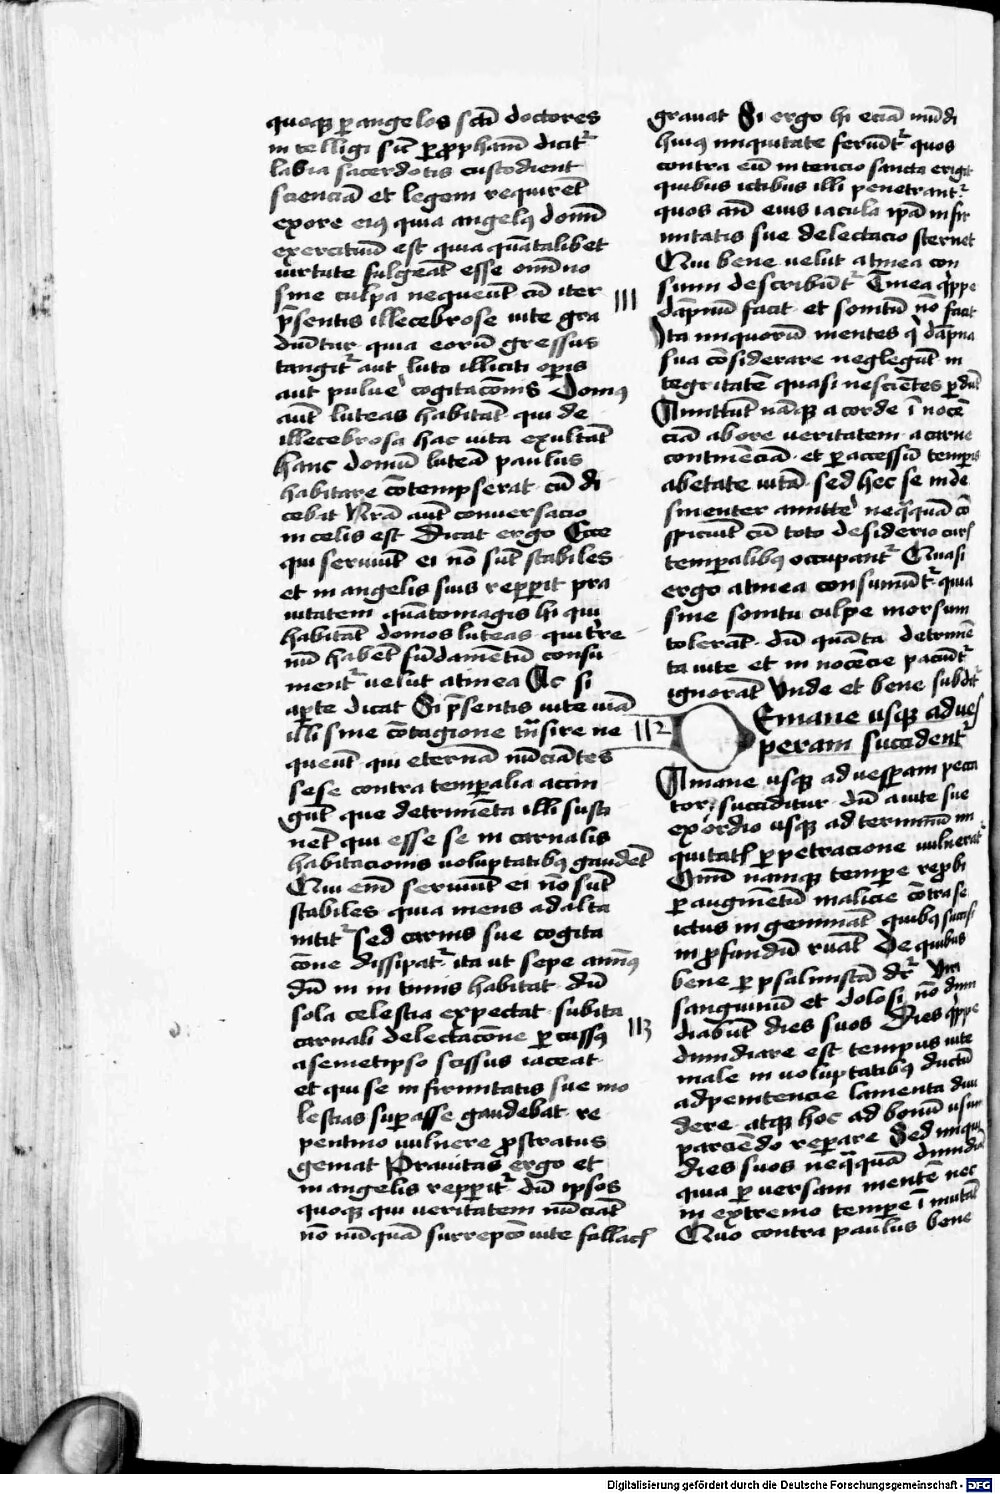 queqꝫ ꝑ angelos sctī doctores
intelligi sic̄ ꝑ ꝓphetam̄ dicit᷑
labia sacerdotis custodient
scienciā et legem requirēt
ex ore eiꝯ quia angelꝯ domī
exercituū est quia quātalibet
uirtute fulgeāt esse omīno
sine culpa nequeūt cū iter
p̄sentis illecebrose uite gra
diūtur quia eorū gressus
tangit᷑ aut luto illiciti oꝑis
aut puluerͤ cogitacōnis Domꝯ
autē luteas habitāt qui de
illecebrosa hac uita exultāt
hanc domū luteā paulus
habitare cōtempserat cū di
cebat Nr̄a aūt conuersacio
in celis est Dicat ergo Ecce
qui seruiūt ei nō sūt stabiles
et in angelis suis reꝑꝑit pra
uitatem quātomagis hi qui
habitāt domos luteas qui tr̄re
nū habēt fūdamētū consu
ment᷑ uelut a tinea Ac si
aꝑte dicat Si p̄sentis uite uiā
illi sine cōtagione trāsire ne
queūt qui eternā nūciātes
sese contra temꝑalia accin
gūt que detrimēta illi susti
nēt qui esse se in carnalis
habitacionis uoluptatibꝯ gaudēt
Qui em̄ seruiūt ei nō sūt
stabiles quia mens ad alta
intit᷑ sed carnis sue cogita
cōne dissipat᷑ ita ut sepe animꝯ
dū in intimis habitat dū
sola celestia expectat subita
carnali delectacōne ꝑcussꝯ
a semetipso scissus iaceat
et qui se infirmitatis sue mo
lestias suꝑasse gaudebat re
pentino uulnere ꝓstratus
gemat Prauitas ergo et
in angelis reꝑꝑit᷑ dū ipsos
quoqꝫ qui ueritatem nūciāt
nō nūquā surrepcō uite fallacꝭ
grauat Si ergo hi eciā mūdi
huiꝯ iniquitate feriūt᷑ quos
contra eū intencio sancta erigit
quibus ictibus illi penetrant᷑
quos an̄ eius iacula ip̄a infir
mitatis sue delectacio sternet
Qui bene uelut a tinea con
sumi describūt᷑ Tinea q̈ppe
III
dāpnū facit et sonitū nō facit
Ita iniquorū mentes q̇ dāpna
sua cōsiderare neglegūt in
tegritatē quasi nesciētes ꝑdūt
Amittūt nāqꝫ a corde īnocē
ciā ab ore ueritatem a carne
continēciā et ꝑ accessū temꝑis
ab etate uitā sed hec se inde
sinenter amitterͤ neq̈quā cō
spiciūt cū toto desiderio curꝭ
temꝑalibꝯ occupant᷑ Quasi
ergo a tinea consumūt᷑ quia
sine sonitu culpe morsum
tolerāt dū quāta detrimē
ta uite et innocēcie paciūt᷑
ignorāt Unde et bene subdit᷑
112
De mane usqꝫ ad uesꝭ
peram succident᷑
A mane usqꝫ ad uesꝑam pecca
tor succiditur dū a uite sue
exordio usqꝫ ad terminū in
iquitatꝭ ꝑpetracione uulnerat᷑
Omī namqꝫ temꝑe reꝓbi
ꝑ augmētū malicie cōtra se
ictus ingemināt quibꝯ succisi
in ꝓfundū ruāt De quibus
bene ꝑ psalmistā dr̄ Uiri
sanguinū et dolosi nō dimi
113
diabūt dies suos Dies q̈ppe
dimidiare est tempus uite
male in uoluptatibꝯ ductū
ad penitencie lamenta diui
dere atqꝫ hoc ad bonū usum
parciēdo reꝑare Sed iniqui
dies suos neq̈quā dimidiāt
quia ꝑuersam mentē nec
in extremo temꝑe īmutāt
Quo contra paulus bene
Digitalisierung gefördert durch die Deutsche Forschungsgemeinschaft - DFG